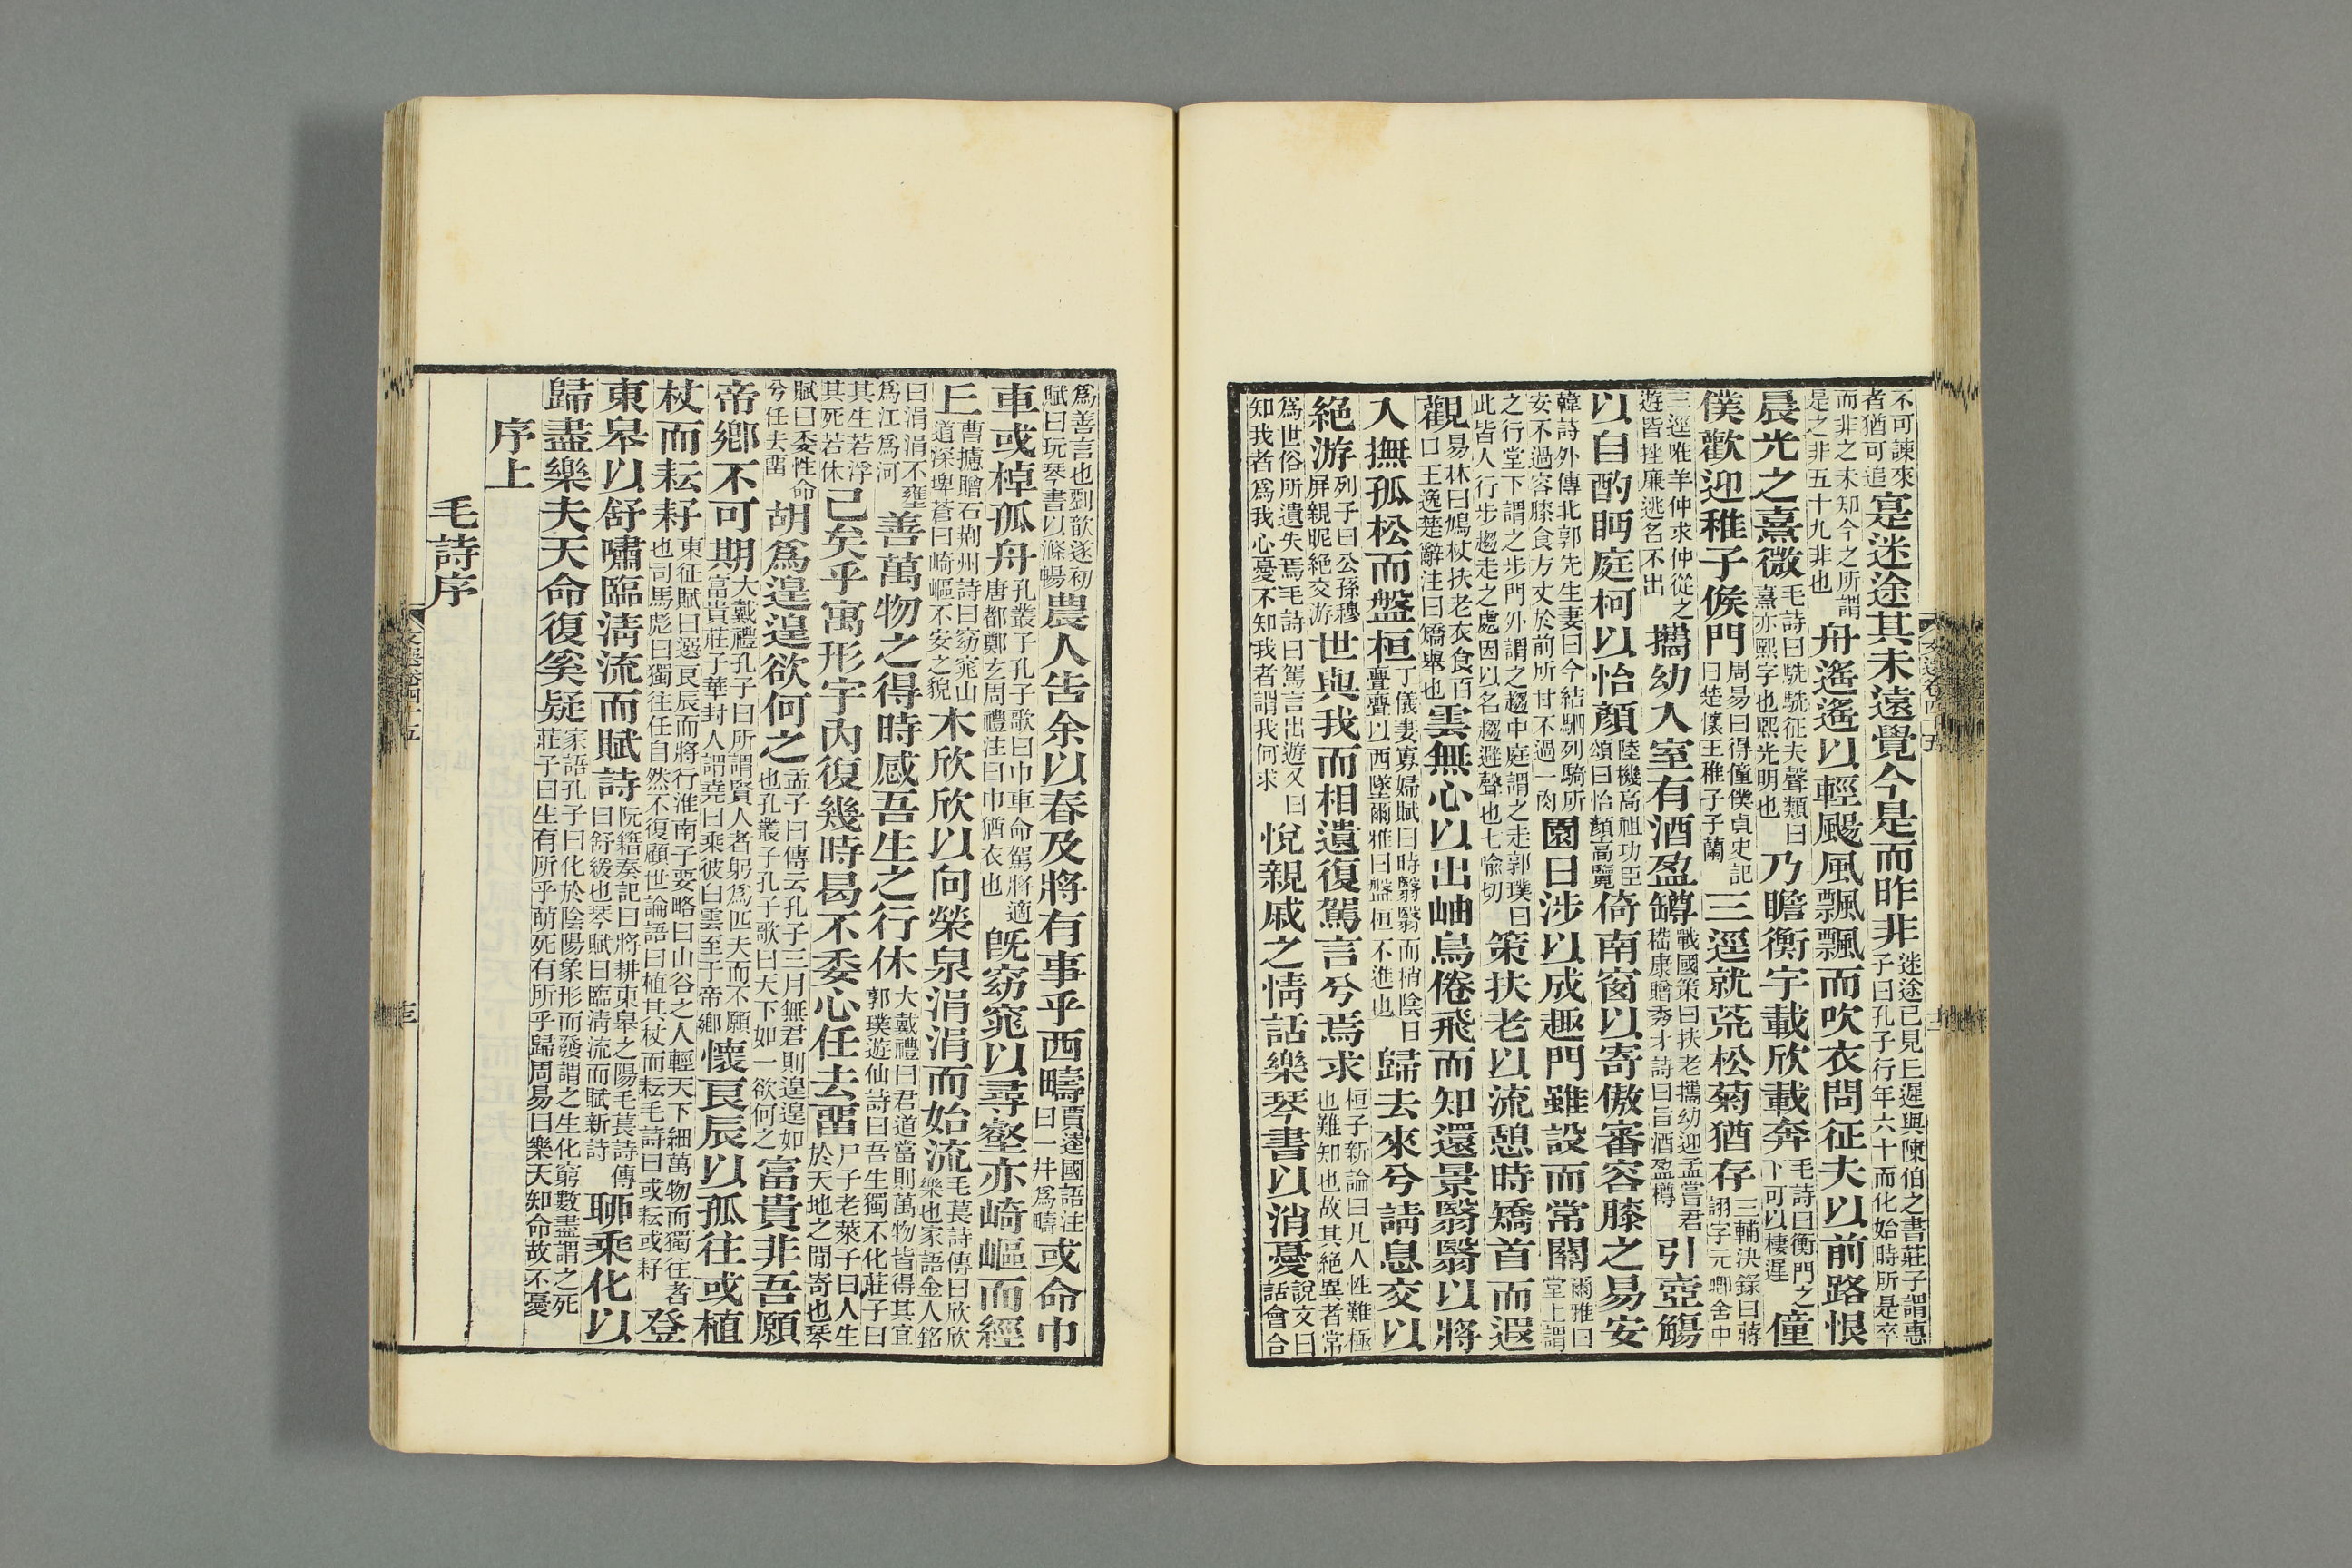 不可諫來者猶可追寔迷途其未遠覺今是而昨非迷途已見丘遲與陳伯之書莊子謂惠子曰孔子行年六十而化始時所是卒
而非之未知今之所謂是之非五十九非也舟遙遙以輕颺風飄飄而吹衣問征夫以前路恨
晨光之熹微毛詩曰駪駪征夫聲類曰熹亦熙字也熙光明也乃瞻衡宇載欣載奔毛詩曰衡門之下可以棲遲僮
僕歡迎稚子候門周易曰得僮僕貞史記曰楚懷王稚子子蘭三逕就荒松菊猶存三輔決錄曰蔣詡字元卿舍中
三逕唯羊仲求仲從之遊皆挫廉逃名不出攜幼入室有酒盈罇戰國策曰扶老攜幼迎孟嘗君嵇康贈秀才詩曰旨酒盈樽引壺觴
以自酌眄庭柯以怡顏陸機高祖功臣頌曰怡顏高覽倚南窗以寄傲審容膝之易安
韓詩外傳北郭先生妻曰今結駟列騎所安不過容膝食方丈於前所甘不過一肉園日涉以成趣門雖設而常關爾雅曰堂上謂
之行堂下謂之步門外謂之趨中庭謂之走郭璞曰此皆人行步趨走之處因以名趨避聲也七喻切策扶老以流憩時矯首而遐
觀易林曰鳩杖扶老衣食百口王逸楚辭注曰矯舉也雲無心以出岫鳥倦飛而知還景翳翳以將
入撫孤松而盤桓丁儀妻寡婦賦曰時翳翳而稍陰日亹亹以西墜爾雅曰盤桓不進也歸去來兮請息交以
絕游列子曰公孫穆屏親昵絕交游世與我而相遺復駕言兮焉求桓子新論曰凡人性難極也難知也故其絕異者常
爲世俗所遺失焉毛詩曰駕言出遊又曰知我者爲我心憂不知我者謂我何求悅親戚之情話樂琴書以消憂說文曰話會合
爲善言也劉歆遂初賦曰玩琴書以滌暢農人告余以春及將有事乎西疇賈逵國語注曰一井爲疇或命巾
車或棹孤舟孔叢子孔子歌曰巾車命駕將適唐都鄭玄周禮注曰巾猶衣也旣窈窕以尋壑亦崎嶇而經
丘曹攄贈石荊州詩曰窈窕山道深埤蒼曰崎嶇不安之貌木欣欣以向榮泉涓涓而始流毛萇詩傳曰欣欣樂也家語金人銘
曰涓涓不壅爲江爲河善萬物之得時感吾生之行休大戴禮曰君道當則萬物皆得其宜郭璞遊仙詩曰吾生獨不化莊子曰
其生若浮其死若休已矣乎寓形宇內復幾時曷不委心任去畱尸子老萊子曰人生於天地之閒寄也琴
賦曰委性命兮任去畱胡爲遑遑欲何之孟子曰傳云孔子三月無君則遑遑如也孔叢子孔子歌曰天下如一欲何之富貴非吾願
帝鄉不可期大戴禮孔子曰所謂賢人者躬爲匹夫而不願富貴莊子華封人謂堯曰乘彼白雲至于帝鄉懷良辰以孤往或植
杖而耘耔東征賦曰選良辰而將行淮南子要略曰山谷之人輕天下細萬物而獨往者也司馬彪曰獨往任自然不復顧世論語曰植其杖而耘毛詩曰或耘或耔登
東皋以舒嘯臨淸流而賦詩阮籍奏記曰將耕東皋之陽毛萇詩傳曰舒緩也琴賦曰臨淸流而賦新詩聊乘化以
歸盡樂夫天命復奚疑家語孔子曰化於陰陽象形而發謂之生化窮數盡謂之死莊子曰生有所乎萌死有所乎歸周易曰樂天知命故不憂
序上
毛詩序